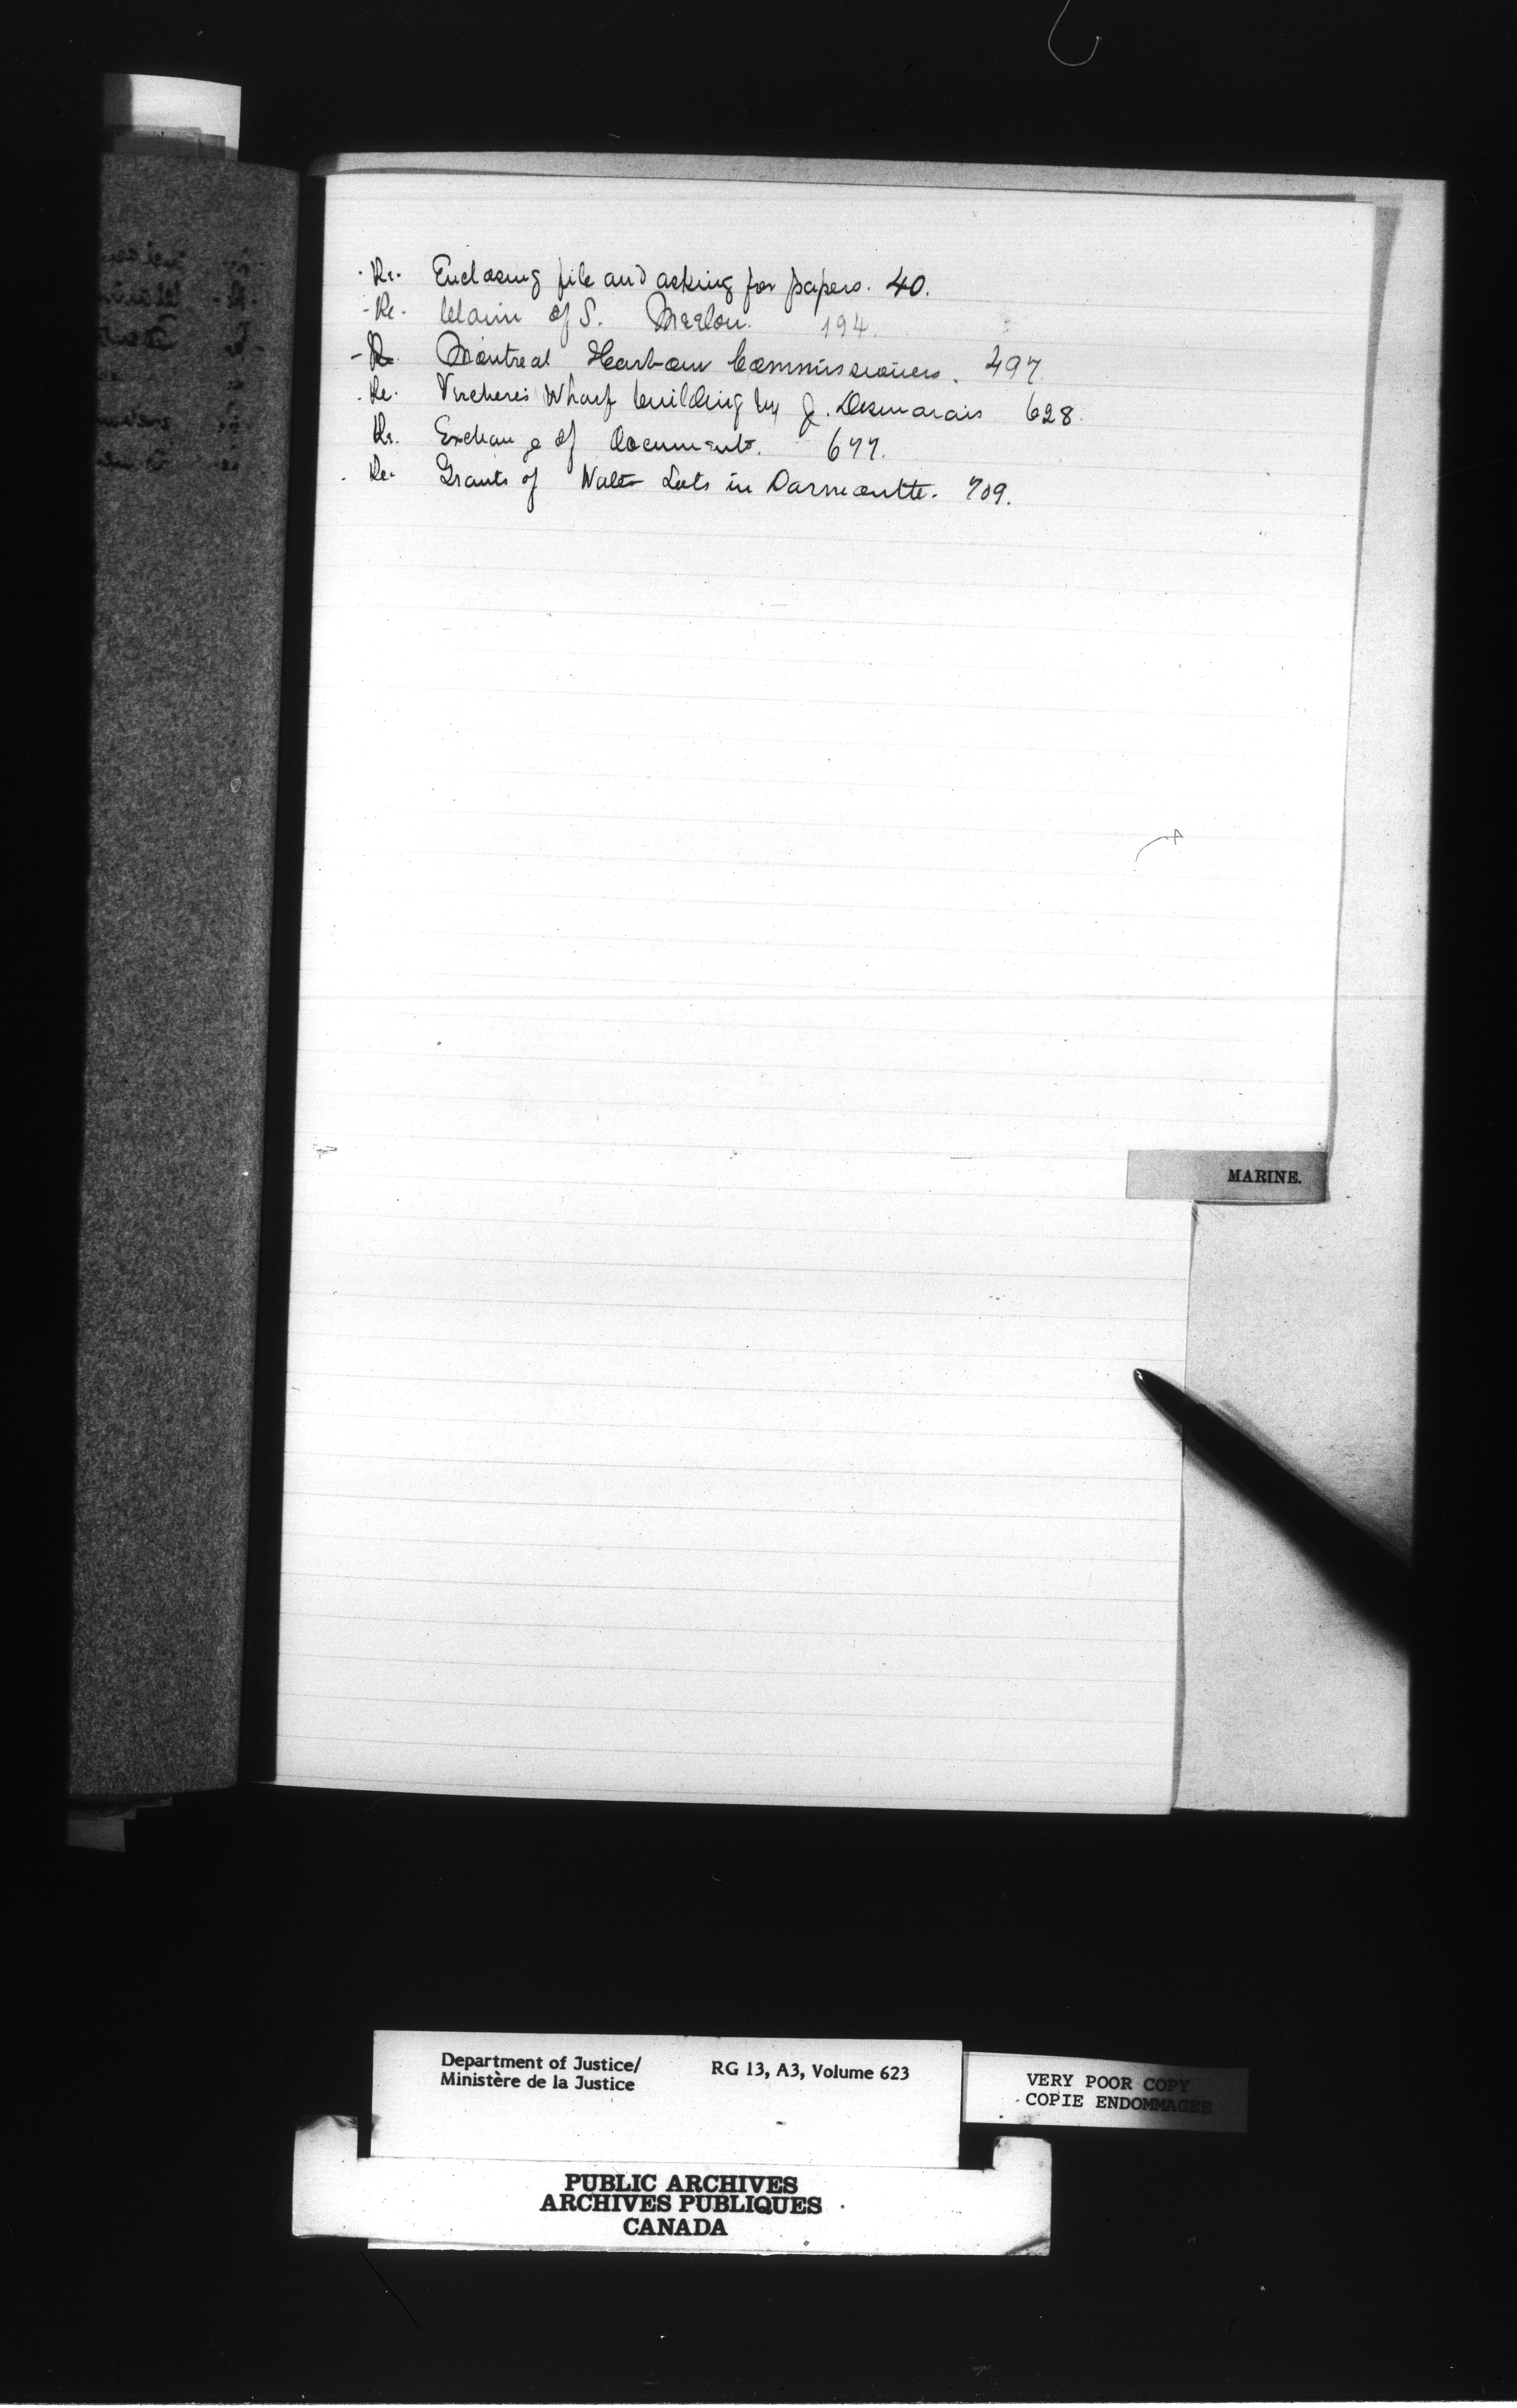 Re. Enclosing file and asking for papers. 40.
Re. Claim of S. 194.
Re. Montreal Harbour Commissioners. 497
Re. Vercheres Wharf building by J. Desmarais 628.
Re. Exchange of Documents. 677.
Re. Grants of Water Lots in 709.
MARINE.
Department of Justice/ RG 13, A3, Volume 623
Ministère de la Justice
VERY POOR COPY
COPIE ENDOMMAGEE
PUBLIC ARCHIVES
ARCHIVES PUBLIQUES
CANADA